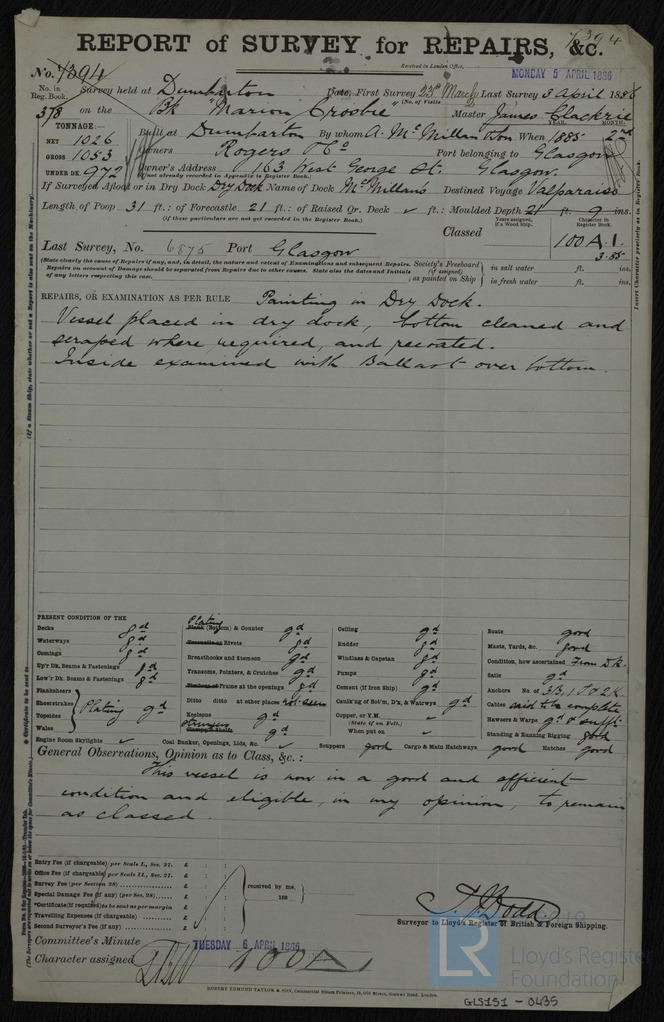 7394
REPORT of SURVEY for REPAIRS, &c.
Received in London Office,
MONDAY 5 APRIL 1886
No. 7394
No. in Reg. Book.
Survey held at Dumbarton Date, First Survey 23rd March Last Survey 3 April 1886
(No. of Visits 2
378 on the Bk Marion Crosbie Master James
TONNAGE:
YEAR. MONTH.
NET 1026
Built at Dumbarton By whom A. McMillan & Son When 1885 2nd
GROSS 1053
Owners Rogers & Co Port belonging to Glasgow
UNDER DK. 972
Owner's Address 163 West George St. Glasgow.
(If not already recorded in Appendix to Register Book.)
If Surveyed Afloat or in Dry Dock Dry Dock Name of Dock McMillan's Destined Voyage Valparaiso
Length of Poop 31 ft.: of Forecastle 21 ft.: of Raised Qr. Deck ✓ ft.: Moulded Depth 21 ft. 9 ins.
(If these particulars are not yet recorded in the Register Book.)
Years assigned, if a Wood Ship.
Character in Register Book.
Classed 100 A.1.
3.85
Last Survey, No. 6875 Port Glasgow
(State clearly the cause of Repairs if any, and, in detail, the nature and extent of Examinations and subsequent Repairs.
Repairs on account of Damage should be separated from Repairs due to other causes. State also the dates and Initials
of any letters respecting this case.
Society's Freeboard (if assigned) as painted on Ship
in salt water ft. ins.
in fresh water ft. ins.
REPAIRS, OR EXAMINATION AS PER RULE Painting in Dry Dock.
Vessel placed in dry dock, bottom cleaned and
scraped where required, and recoated.
Inside examined with Ballast over bottom.
PRESENT CONDITION OF THE
Decks gd
Waterways gd
Comings gd
Up'r Dk. Beams & Fastenings gd
Low'r Dk. Beams & Fastenings gd
Planksheers
Sheerstrakes
Topsides
Wales
Plating gd
Engine Room Skylights ✓
Plating
Plank (Bottom) & Counter gd
Treenails or Rivets gd
Breasthooks and Stemson gd
Transoms, Pointers, & Crutches gd
Timbers or Frame at the openings gd
Ditto ditto at other places not seen
Keelsons gd
Stringers
Clamps & Shelfs gd
Coal Bunker, Openings, Lids, &c. ✓
Ceiling gd
Rudder gd
Windlass & Capstan gd
Pumps gd
Cement (if Iron Ship) gd
Caulk'ng of Bot'm, D'k, & Watrwys gd
Copper, or Y.M. ✓
(State if on Felt.)
When put on ✓
Scuppers good
Cargo & Main Hatchways good
Boats good
Masts, Yards, &c. good
Condition, how ascertained From Dk.
Sails gd
Anchors No. of 3B, 1S & 2K.
Cables said to be complete
Hawsers & Warps gd & suffi
Standing & Running Rigging good
Hatches good
General Observations, Opinion as to Class, &c.:
This vessel is now in a good and efficient
condition and eligible, in my opinion, to remain
as classed.
Entry Fee (if chargeable) per Scale I., Sec. 27. £
Office Fee (if chargeable) per Scale II., Sec. 27. £
Survey Fee (per Section 28) £
Special Damage Fee (if any) (per Sec. 28) £
*Certificate (if required) to be sent as per margin £
Travelling Expenses (if chargeable) £
Second Surveyor's Fee (if any) £
received by me,
188
T. J. Dodd
Surveyor to Lloyd's Register of British & Foreign Shipping.
Committee's Minute TUESDAY 6 APRIL 1886
Character assigned 100A1
ROBERT EDMUND TAYLOR & SON,
LR
Lloyd's Register
Foundation
GLS151 - 0435
Insert Character precisely as in Register Book.